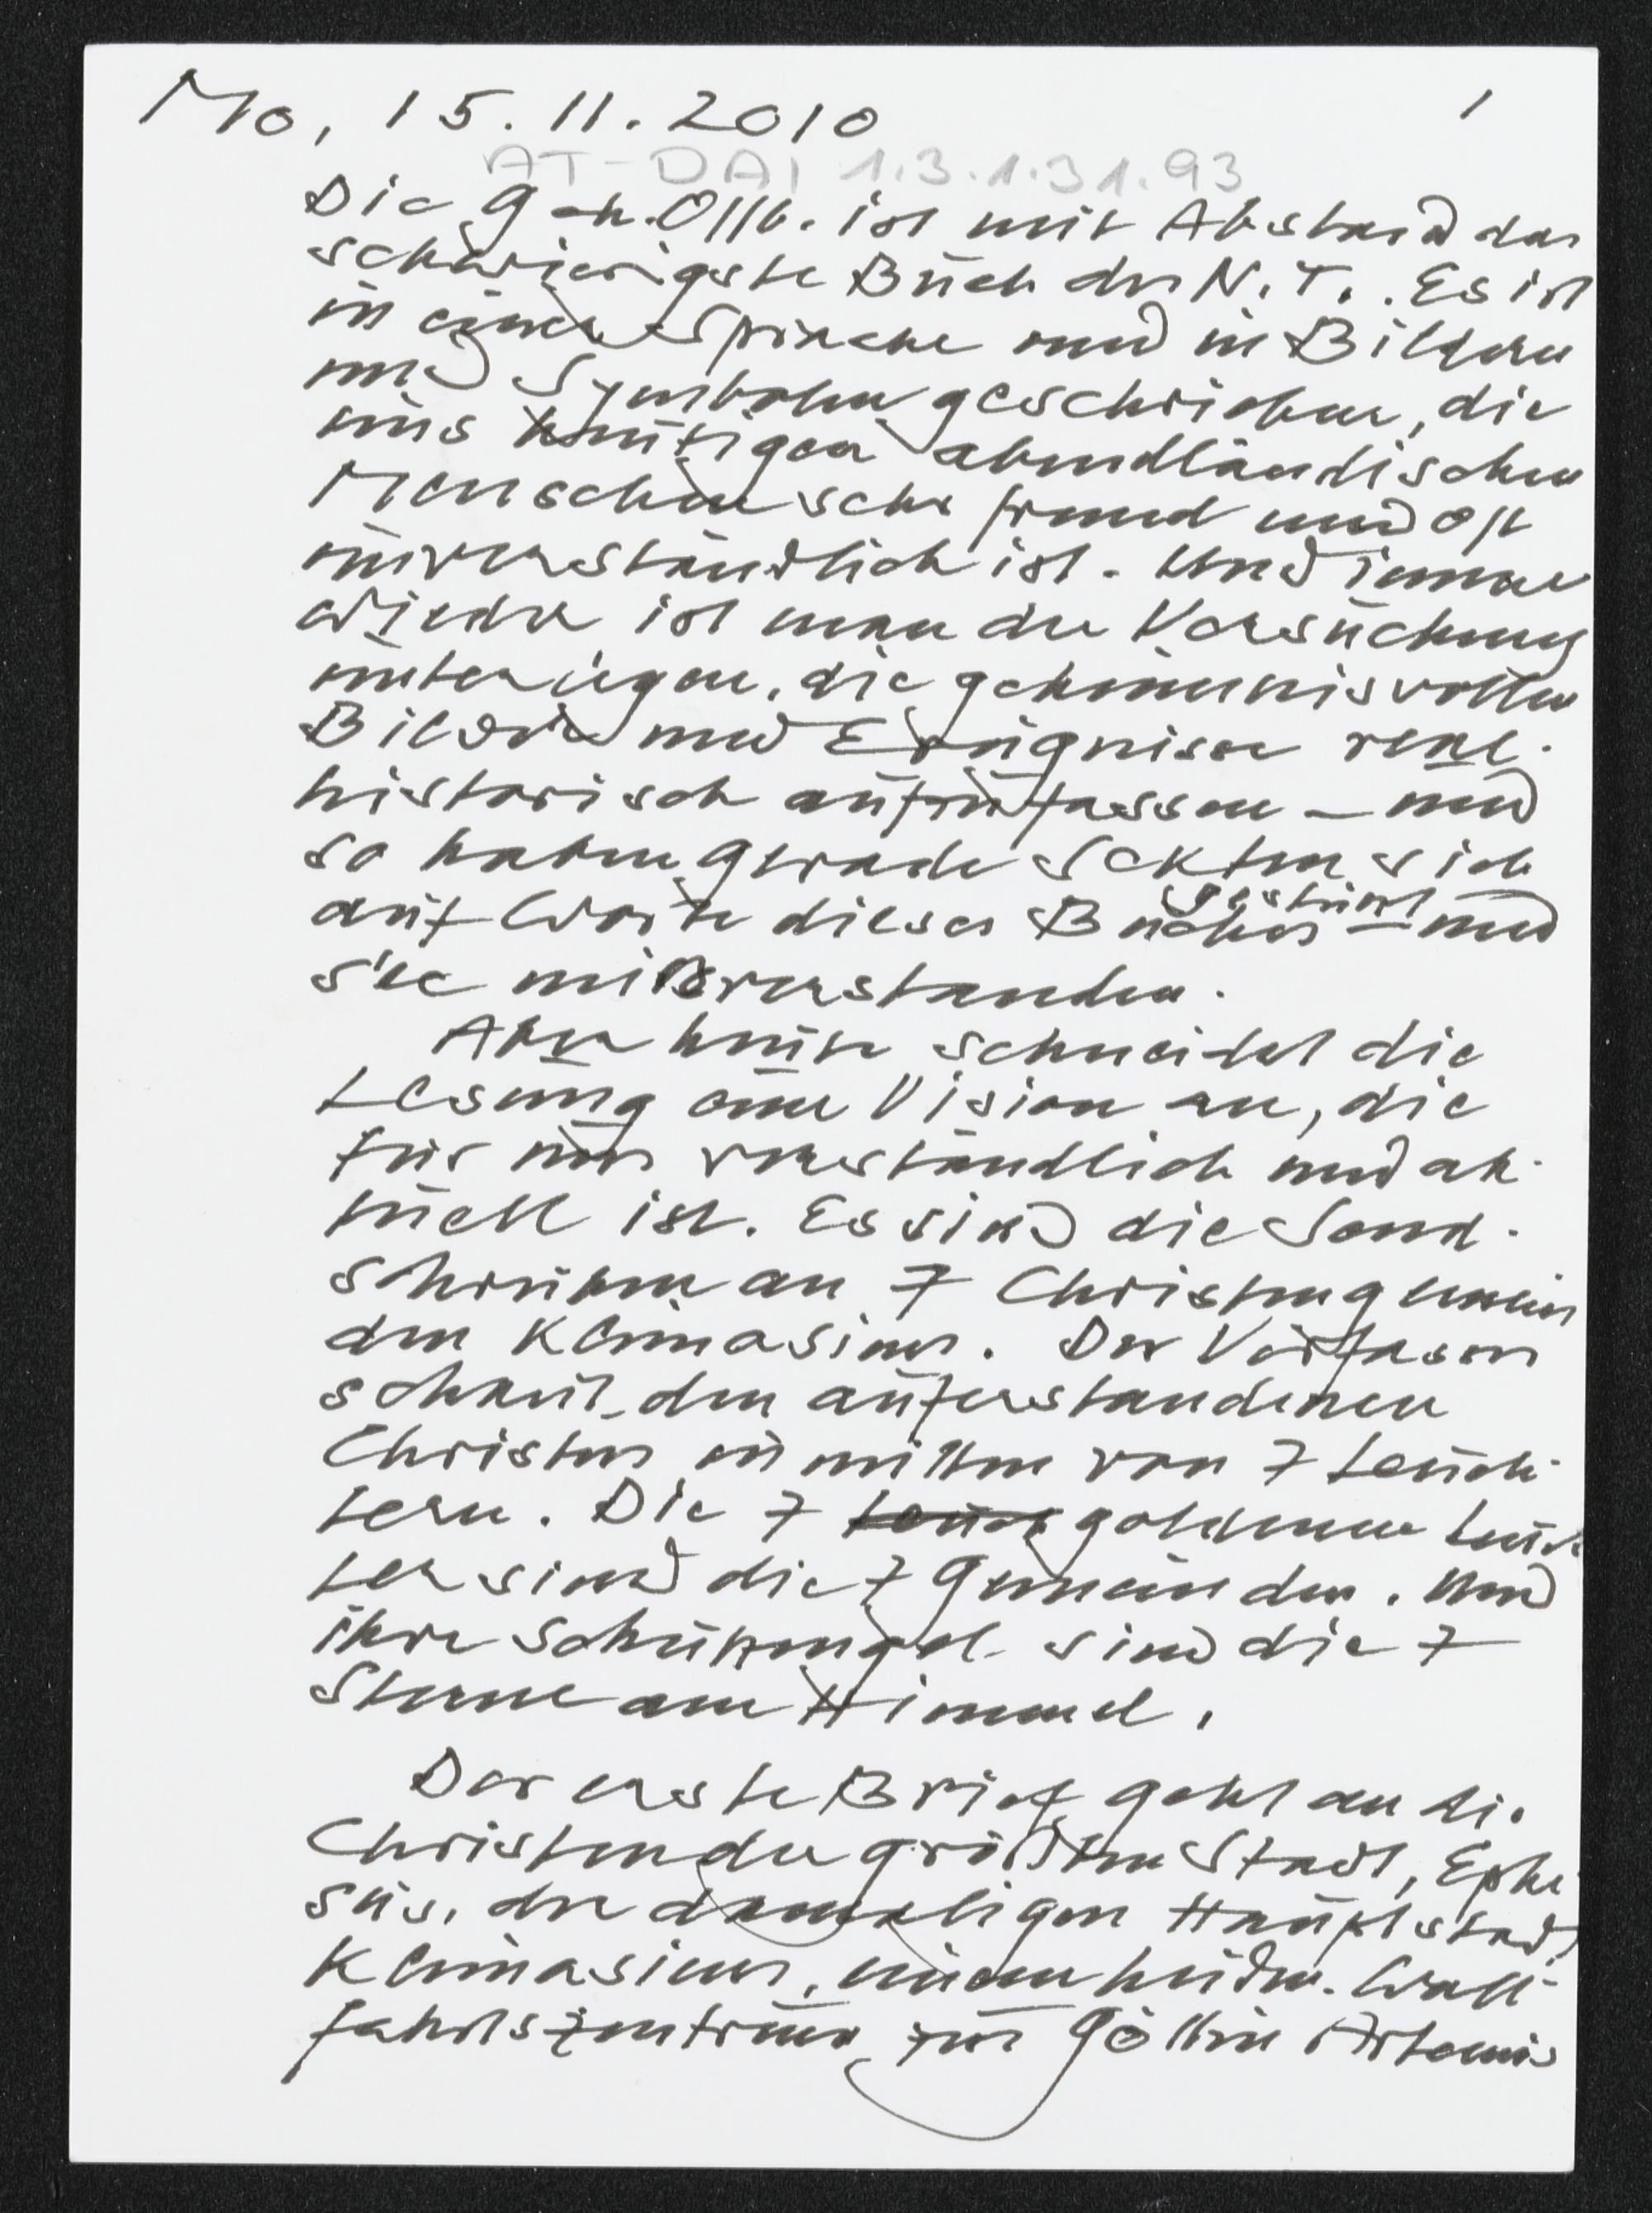 Mo, 15.11.2010 1
AT-DAI 1.3.1.31.93
Die Geh. Offb. ist mit Abstand das
schwierigste Buch des N.T.. Es ist
in einer Sprache und in Bildern
und Symbolen geschrieben, die
uns heutigen abendländischen
Menschen sehr fremd und oft
unverständlich ist. Und immer
wieder ist man der Versuchung
unterlegen, die geheimnisvollen
Bilder und Ereignisse real-
historisch aufzufassen – und
so haben gerade Sekten sich
auf Worte dieses Buches gestürzt – und
sie mißverstanden.
Aber heute schneidet die
Lesung eine Vision an, die
für uns verständlich und ak-
tuell ist. Es sind die Send-
schreiben an 7 Christengemein
den Kleinasiens. Der Verfasser
schaut den auferstandenen
Christus inmitten von 7 Leuch-
tern. Die 7 Leucht goldenen Leuch
ter sind die 7 Gemeinden. Und
ihre Schutzengel sind die 7
Sterne am Himmel.
Der erste Brief geht an die
Christen der größten Stadt, Ephe
sus, der damaligen Hauptstadt
Kleinasiens, einem heidn. Wall-
fahrtszentrum zur Göttin Artemis